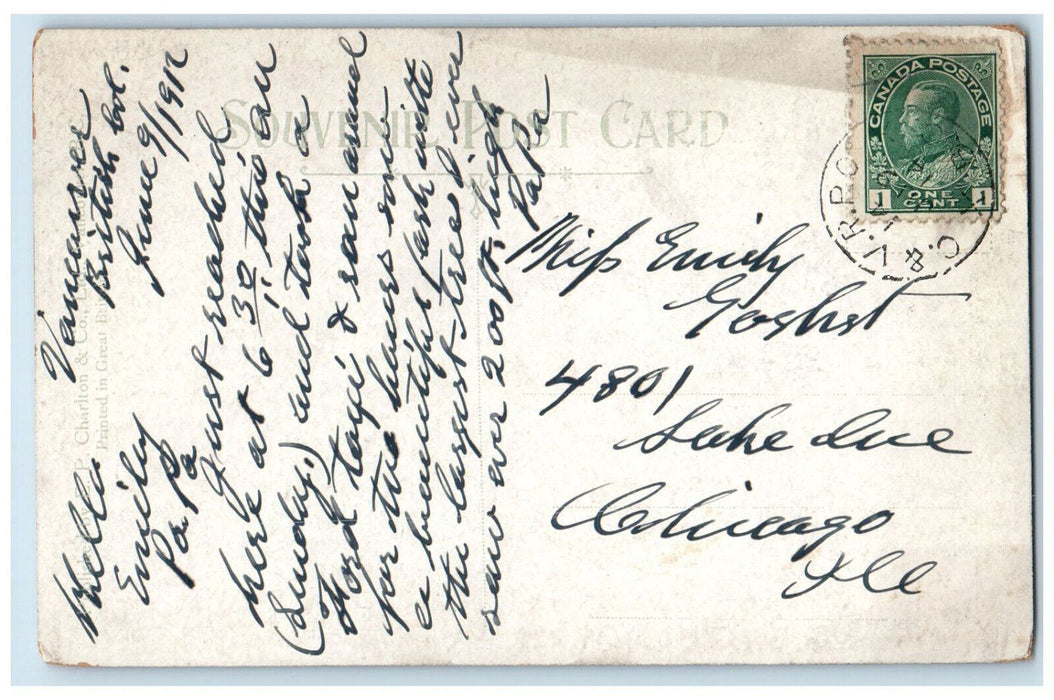 SOUVENIR POST CARD
P. Charlton & Co.,
Printed in Great
Vancuver
British Col.
June 9/1912
Hello
Emily
Pa. Pa
Just reached
here at 6 30 this
(Sunday.) and took a
Ford taxi & ran around
for two hours saw
a beautiful park with
the largest trees I ever
saw over 200 ft. high
Papa
Miss Emily
4801
Lake Ave
Chicago
Ill
CANADA POSTAGE
1 ONE CENT 1
C. & V. R.P.O.